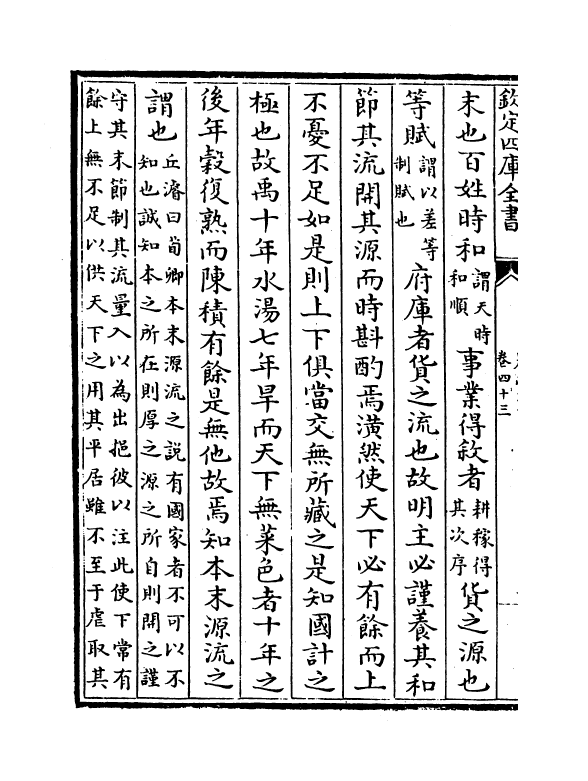 欽定四庫全書
卷四十三
末也百姓時和謂天時和順事業得敘者耕稼得其次序貨之源也
等賦謂以差等制賦也府庫者貨之流也故明主必謹養其和
節其流開其源而時斟酌焉潢然使天下必有餘而上
不憂不足如是則上下俱當交無所藏之是知國計之
極也故禹十年水湯七年旱而天下無菜色者十年之
後年穀復熟而陳積有餘是無他故焉知本末源流之
謂也丘濬曰荀卿本末源流之説有國家者不可以不知也誠知本之所在則厚之源之所自則開之謹
守其末節制其流量入以為出挹彼以注此使下常有餘上無不足以供天下之用其平居雖不至于虐取其